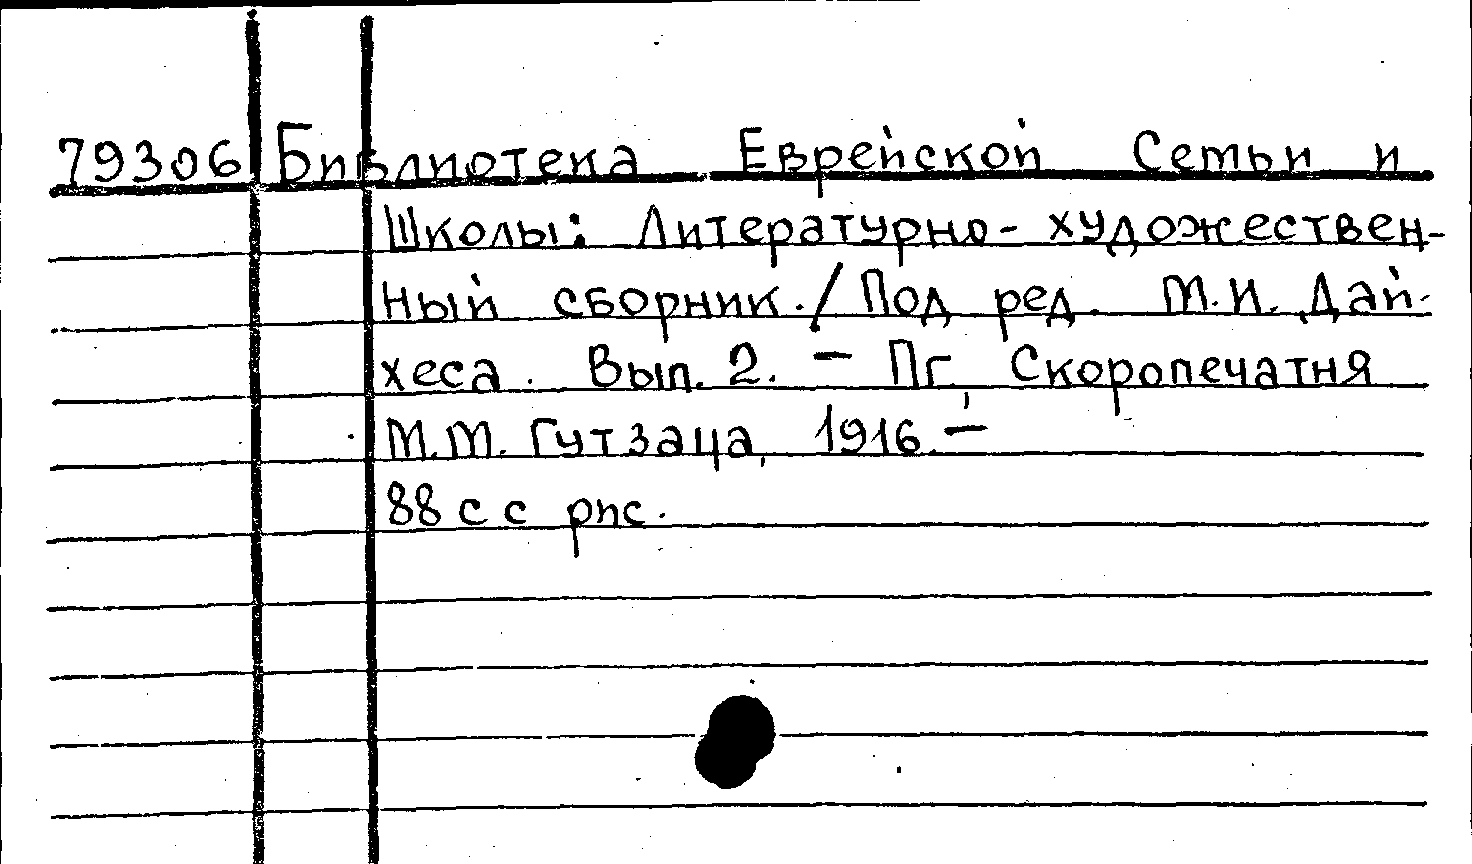 79306 Библиотека Еврейской Сетьи и
Школы: Литературно-художествен-
ный сборник./Под ред. М.И. Дай-
хеса. Вып. 2. – Пг. Скоропечатня
М.М. Гутзаца, 1916. –
88 с с рис.